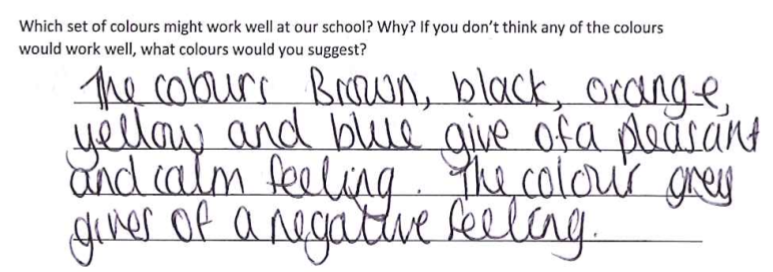 Which set of colours might work well at our school? Why? If you don't think any of the colours
would work well, what colours would you suggest?
The colours Brown, black, orange,
yellow and blue give of a pleasant
and calm feeling. The colour grey
gives of a negative feeling.